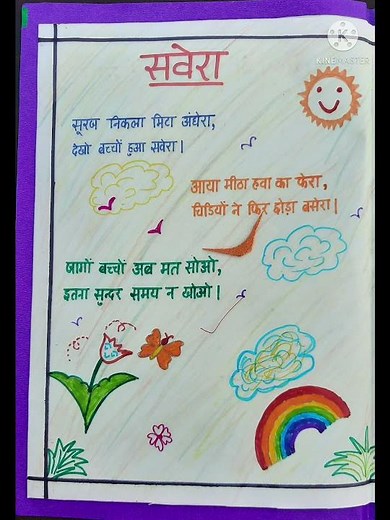 KINEMASTER
सवेरा
सूरज निकला मिटा अंधेरा,
देखो बच्चों हुआ सवेरा।
आया मीठा हवा का फेरा,
चिडियों ने फिर छोड़ा बसेरा।
जागों बच्चों अब मत सोओ,
इतना सुन्दर समय न खोओ।